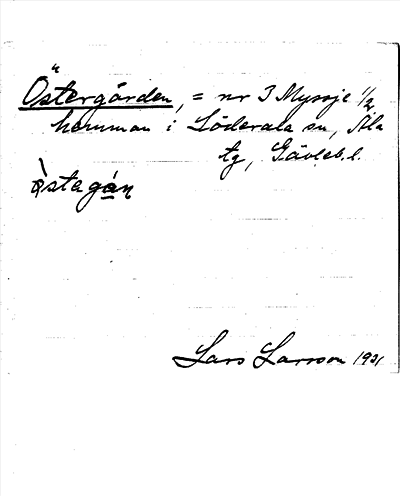 Östergården, = nr 3 Myssje 1/2
hemman i Söderala sn, Ala
tg, Gävleb. l.
östagán
Lars Larsson 1921